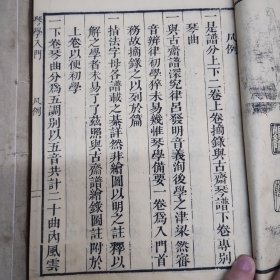 凡例
是譜分上下二卷上卷摘錄與古齋琴譜下卷專列
琴曲
與古齋譜深究律呂發明音義洵後學之津梁然審
音辨律初學猝未易幾惟琴學備要一卷為入門首
務故摘錄之以列於篇
拈法字母各譜載之綦詳然非繪圖以明之註釋以
解之學者未易了了茲照與古齋譜繪錄圖註附於
上卷以便初學
二下卷琴曲分為五調別以五音共計二十曲內風雲
琴學入門
凡例